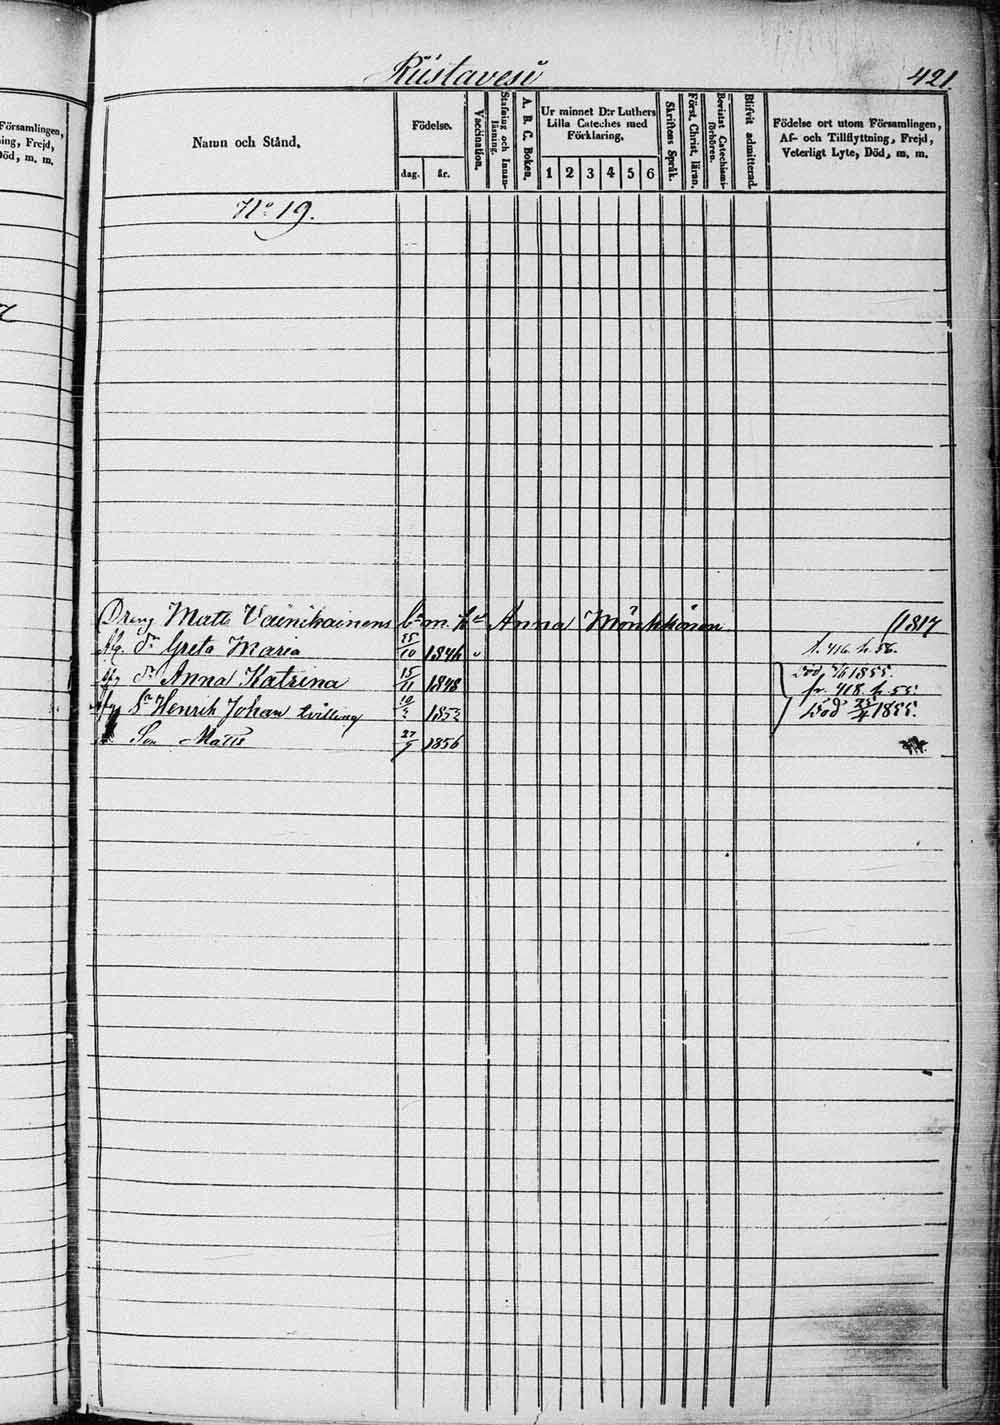 Rustavesi
421.
Församlingen,
ning, Frejd,
Död, m. m.
Namn och Stånd.
Födelse.
dag.
år.
Vaccination.
Stafning och Innan-
läsning.
A. B. C. Boken.
Ur minnet D:r Luthers
Lilla Cateches med
Förklaring.
1 2 3 4 5 6
Skriftens Språk.
Först. Christ. läran.
Bevistat Catechismi-
förhören.
Blifvit admitterad.
Födelse ort utom Församlingen,
Af- och Tillflyttning, Frejd,
Veterligt Lyte, Död, m. m.
No 19.
Dreng Matts Väinikainens b. m. H. Anna Mönkkönen (1817
dr Greta Maria 25/10 1846 t. 416. h. 56.
dr Anna Katrina 15/11 1848 Död 1855.
fr. 418. h. 55.
Sn Henrik Johan tvilling 10/2 1852 Död 25/4 1855.
Son Matts 27/9 1856